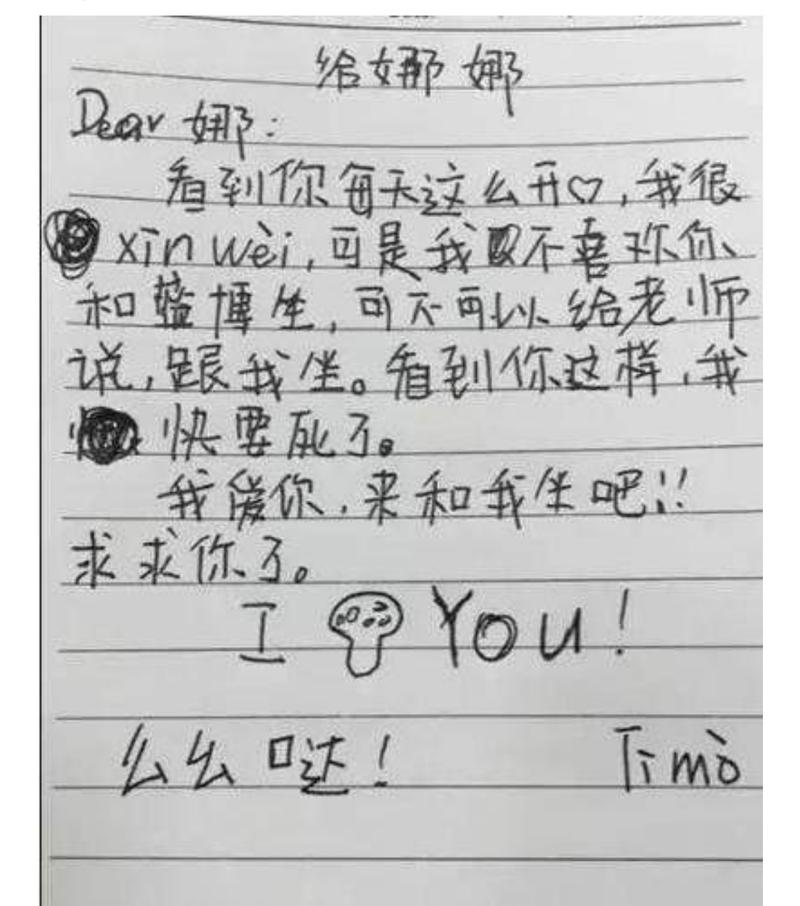 给娜娜
Dear 娜:
看到你每天这么开♡,我很
xīn wèi,可是我不喜欢你
和蓝博生,可不可以给老师
说,跟我坐。看到你这样,我
快要死了。
我爱你,来和我坐吧!!
求求你了。
I You!
么么哒!
Timò